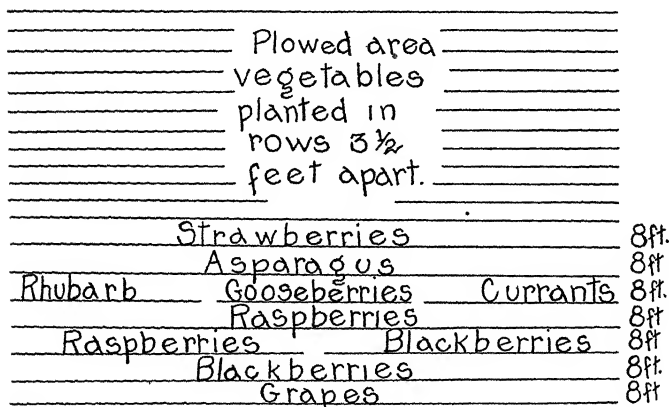 Plowed area
vegetables
planted in
rows 3½
feet apart.
Strawberries 8ft.
Asparagus 8ft
Rhubarb Gooseberries Currants 8ft.
Raspberries 8ft
Raspberries Blackberries 8ft
Blackberries 8ft.
Grapes 8ft